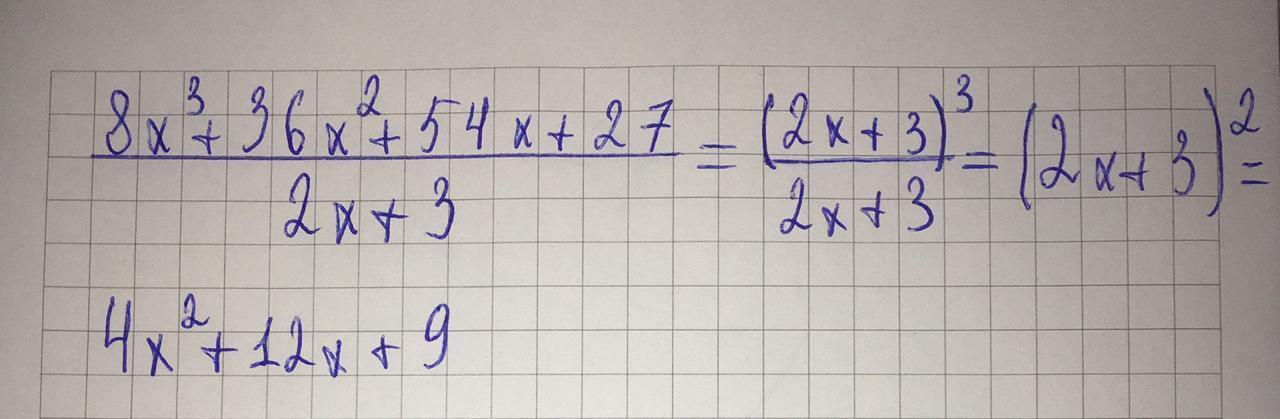 (8x³ + 36x² + 54x + 27)/(2x + 3) = (2x + 3)³/(2x + 3) = (2x + 3)² =
4x² + 12x + 9